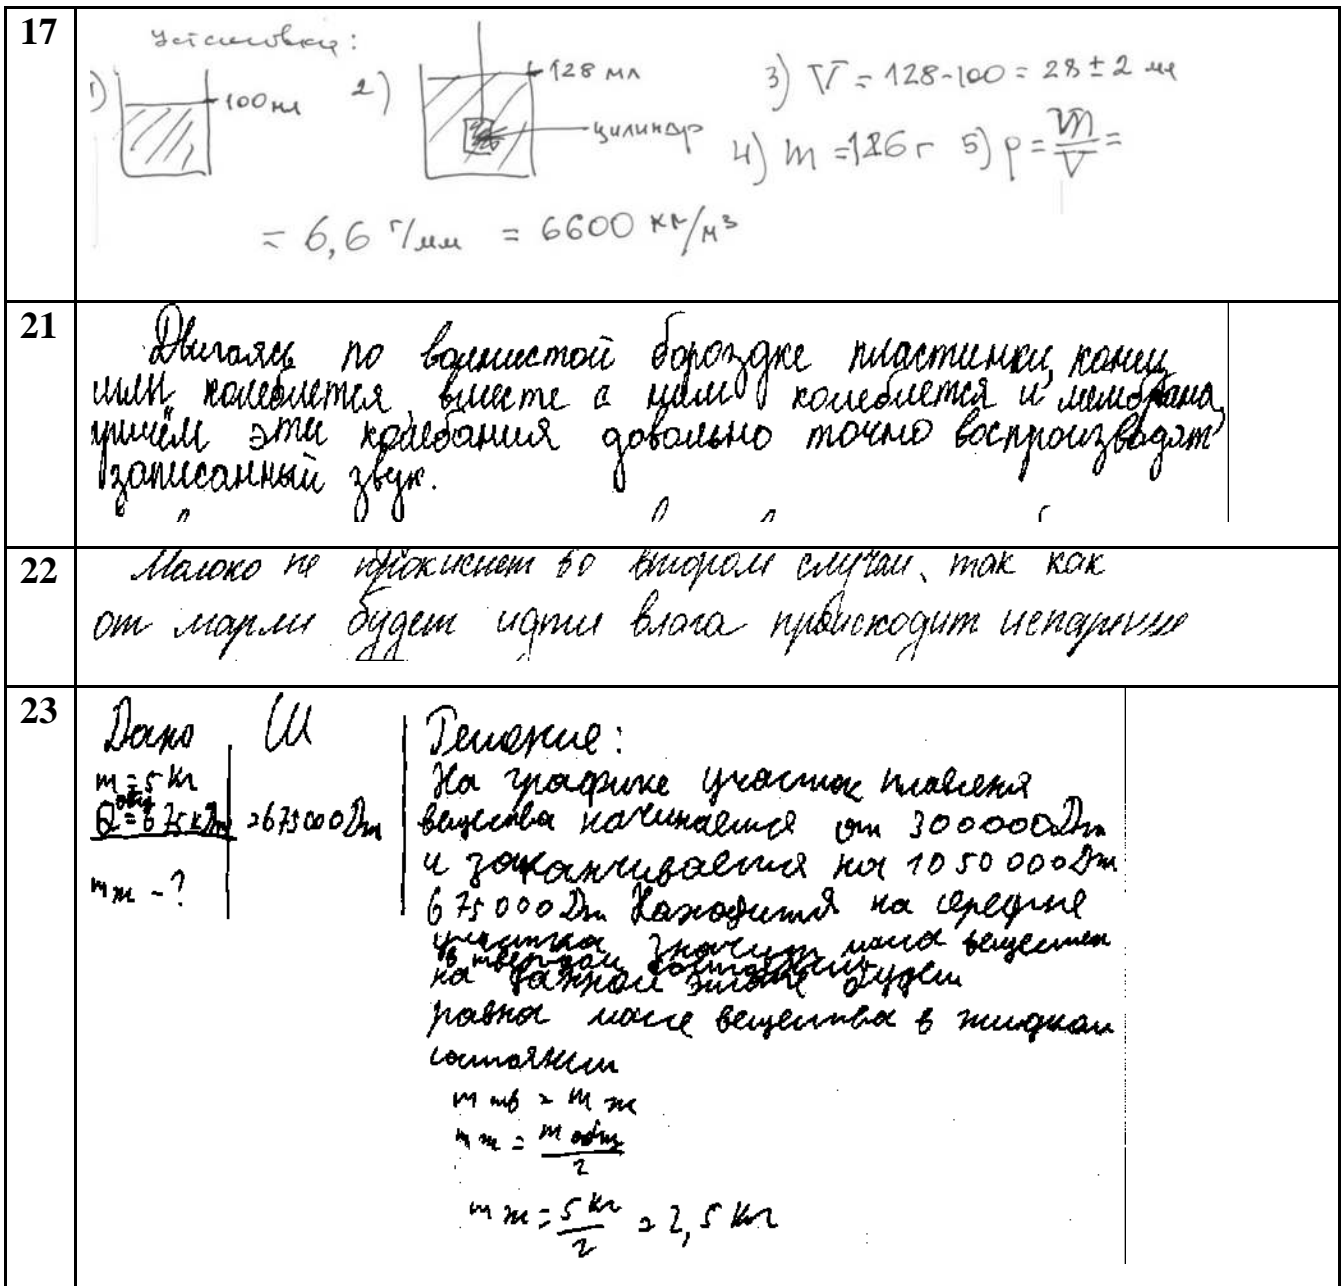 17
Установка:
1) 100 мл 2) 128 мл цилиндр
3) V = 128-100 = 28 ± 2 мл
4) m = 186 г 5) ρ = m/V =
= 6,6 г/мл = 6600 кг/м³
21
Двигаясь по волнистой бороздке пластинки, конец
иглы колеблется, вместе с ним колеблется и мембрана,
причём эти колебания довольно точно воспроизводят
записанный звук.
22
Малоко не прокиснет во втором случаи, так как
от марли будет идти влага происходит испарение
23
Дано СИ Решение:
m = 5 кг
Qобщ = 675 кДж = 675000 Дж
mж - ?
На графике участок плавленя
вещества начинается от 300000Дж
и заканчивается на 1050000Дж
675000 Дж Находится на середине
участка значит масса вещества
в твердом состоянии
на данном этапе будет
равна массе вещества в жидком
состоянии
m тв = m ж
m ж = m общ / 2
m ж = 5 кг / 2 = 2,5 кг